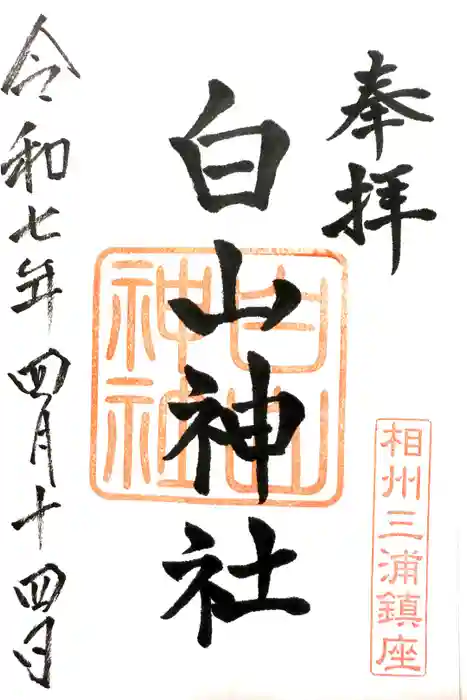 奉拝
相州三浦鎮座
白山神社
白山神社
令和七年四月十四日